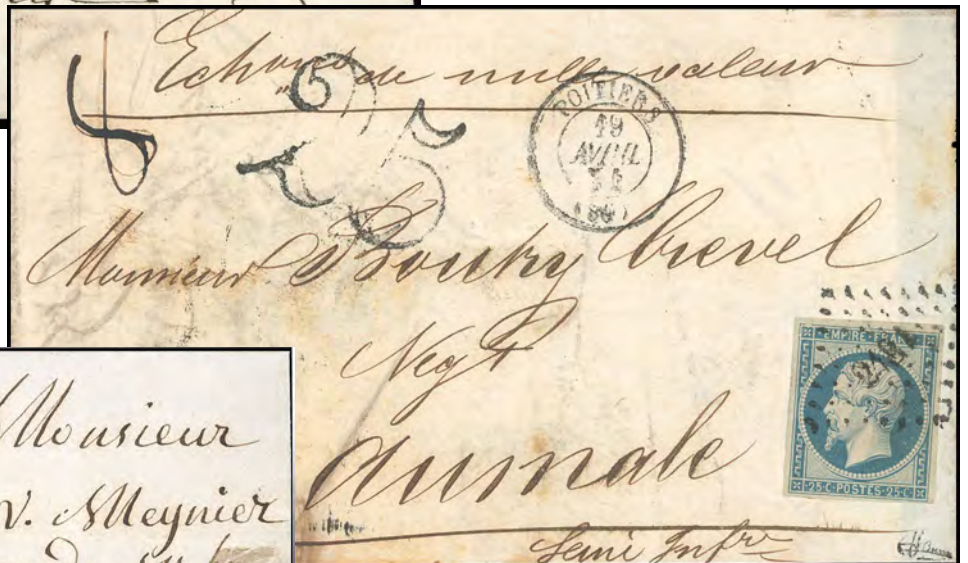 Echons de nulle valeur
25
POITIERS
19
AVRIL
54
Monsieur Boutry Crevel
Negt
aumale
Seine Infre
EMPIRE FRANC
25·C·POSTES·25·C
Monsieur
V. Meynier